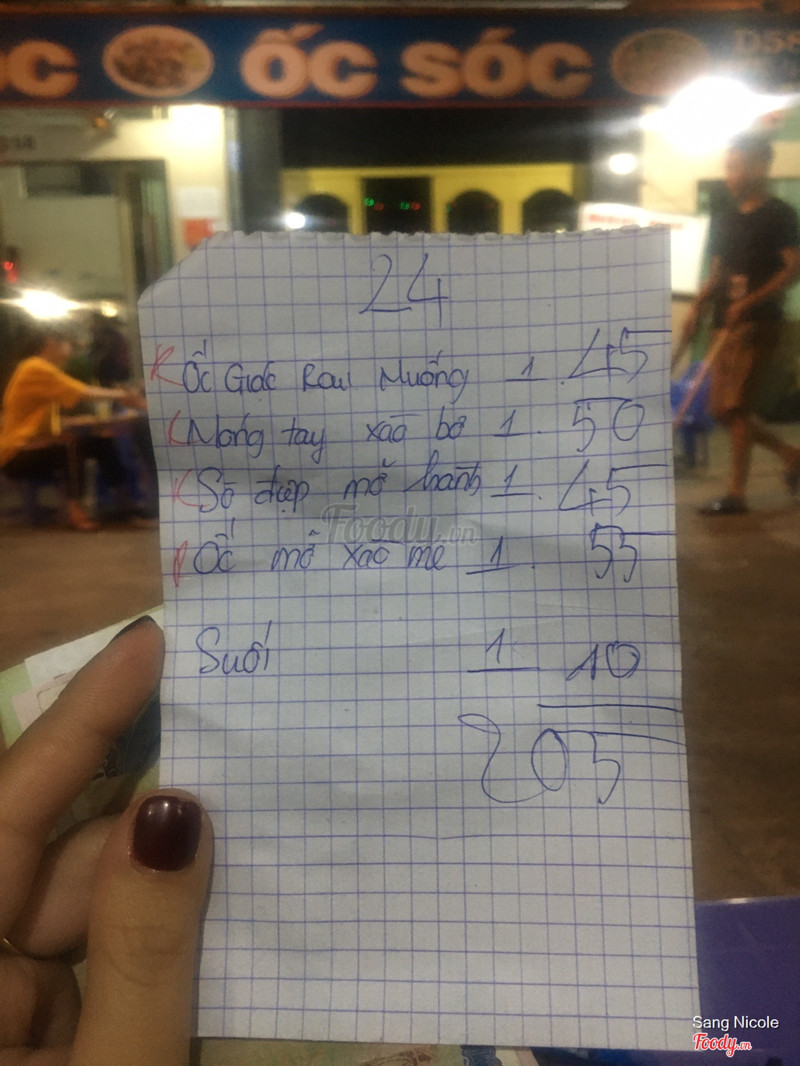 ỐC SÓC
D58
24
Ốc Giác Rau Muống 1 . 45
Móng tay xào bơ 1 . 50
Sò điệp mỡ hành 1 . 45
Ốc mỡ xào me 1 . 55
Suối 1 10
205
Foody.vn
Sang Nicole
Foody.vn